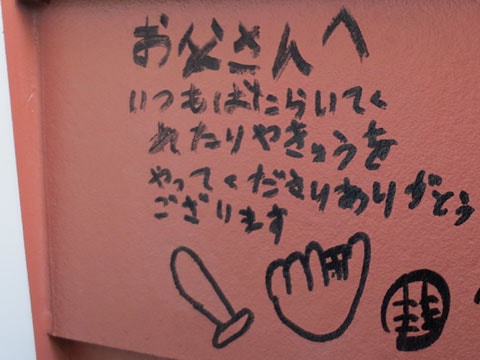 お父さんへ
いつもはたらいてく
れたりやきゅうを
やってくださりありがとう
ございます